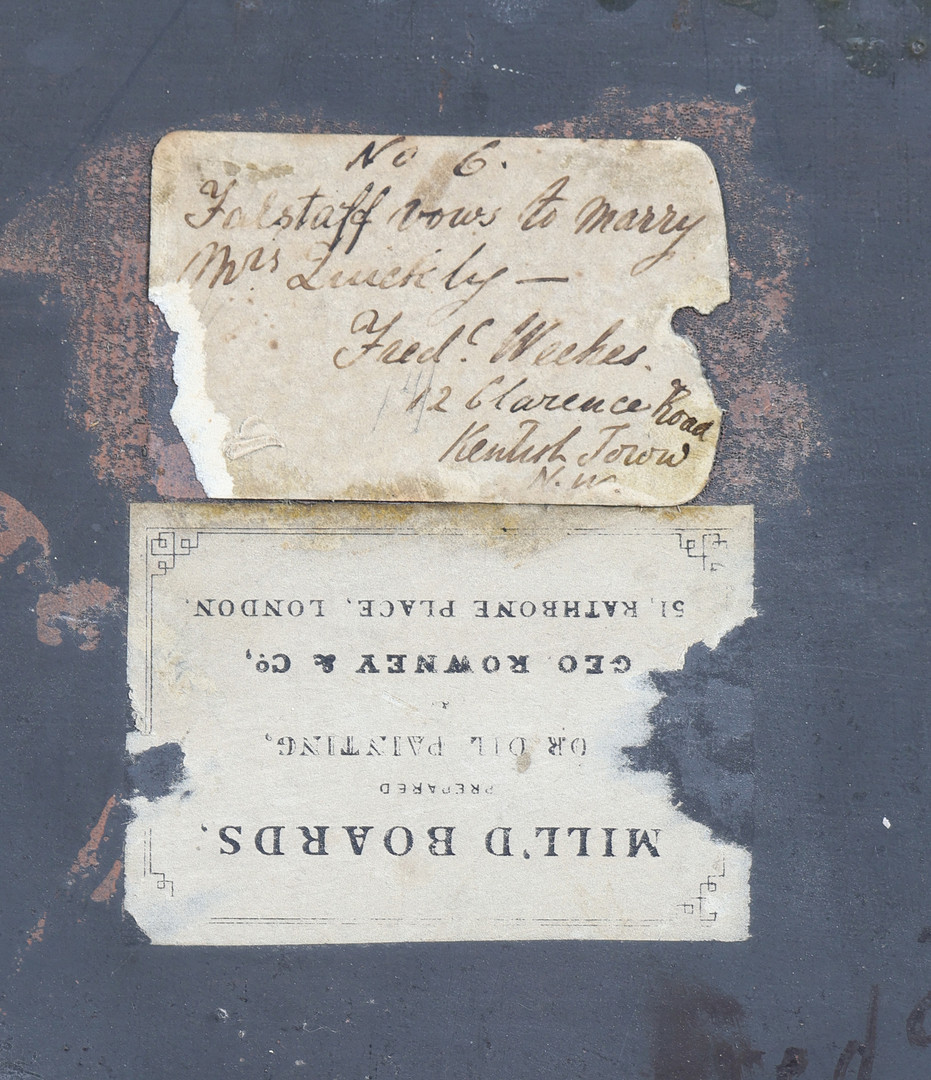 No 6.
Falstaff vows to marry
Mrs Quickly —
Fredc. Weekes.
12 Clarence Road
Kentish Town
N.W.
MILL'D BOARDS,
PREPARED
OR OIL PAINTING,
&
GEO. ROWNEY & Co,
51, RATHBONE PLACE, LONDON.
Fred